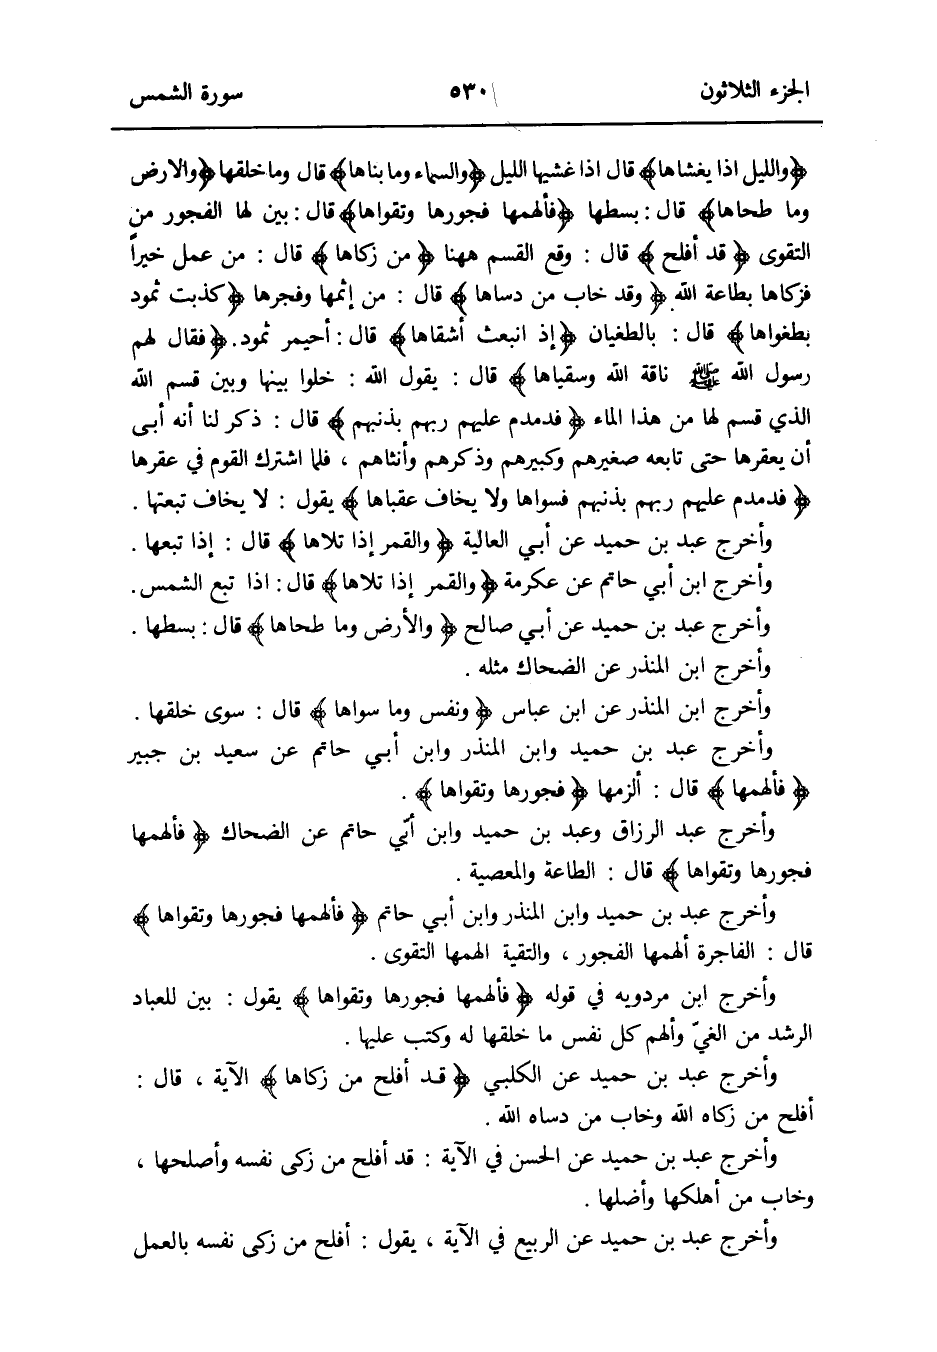 الجزء الثلاثون ٥٣٠ سورة الشمس
﴿والليل اذا يغشاها﴾ قال اذا غشيها الليل ﴿والسماء وما بناها﴾ قال وما خلقها ﴿والارض
وما طحاها﴾ قال : بسطها ﴿فألهمها فجورها وتقواها﴾ قال : بين لها الفجور من
التقوى ﴿ قد أفلح ﴾ قال : وقع القسم ههنا ﴿ من زكاها ﴾ قال : من عمل خيراً
فزكاها بطاعة الله ﴿ وقد خاب من دساها ﴾ قال : من إثمها وفجرها ﴿ كذبت ثمود
بطغواها ﴾ قال : بالطغيان ﴿ إذ انبعث أشقاها ﴾ قال : أحيمر ثمود . ﴿ فقال لهم
رسول الله ﷺ ناقة الله وسقياها ﴾ قال : يقول الله : خلوا بينها وبين قسم الله
الذي قسم لها من هذا الماء ﴿ فدمدم عليهم ربهم بذنبهم ﴾ قال : ذكر لنا أنه أبى
أن يعقرها حتى تابعه صغيرهم وكبيرهم وذكرهم وأنثاهم ، فلما اشترك القوم في عقرها
﴿ فدمدم عليهم ربهم بذنبهم فسواها ولا يخاف عقباها ﴾ يقول : لا يخاف تبعتها .
وأخرج عبد بن حميد عن أبي العالية ﴿ والقمر إذا تلاها ﴾ قال : إذا تبعها .
وأخرج ابن أبي حاتم عن عكرمة ﴿ والقمر إذا تلاها ﴾ قال : اذا تبع الشمس .
وأخرج عبد بن حميد عن أبي صالح ﴿ والأرض وما طحاها ﴾ قال : بسطها .
وأخرج ابن المنذر عن الضحاك مثله .
وأخرج ابن المنذر عن ابن عباس ﴿ ونفس وما سواها ﴾ قال : سوى خلقها .
وأخرج عبد بن حميد وابن المنذر وابن أبي حاتم عن سعيد بن جبير
﴿ فألهمها ﴾ قال : ألزمها ﴿ فجورها وتقواها ﴾ .
وأخرج عبد الرزاق وعبد بن حميد وابن أبي حاتم عن الضحاك ﴿ فألهمها
فجورها وتقواها ﴾ قال : الطاعة والمعصية .
وأخرج عبد بن حميد وابن المنذر وابن أبي حاتم ﴿ فألهمها فجورها وتقواها ﴾
قال : الفاجرة ألهمها الفجور ، والتقية الهمها التقوى .
وأخرج ابن مردويه في قوله ﴿ فألهمها فجورها وتقواها ﴾ يقول : بين للعباد
الرشد من الغيّ وألهم كل نفس ما خلقها له وكتب عليها .
وأخرج عبد بن حميد عن الكلبي ﴿ قد أفلح من زكاها ﴾ الآية ، قال :
أفلح من زكاه الله وخاب من دساه الله .
وأخرج عبد بن حميد عن الحسن في الآية : قد أفلح من زكى نفسه وأصلحها ،
وخاب من أهلكها وأضلها .
وأخرج عبد بن حميد عن الربيع في الآية ، يقول : أفلح من زكى نفسه بالعمل